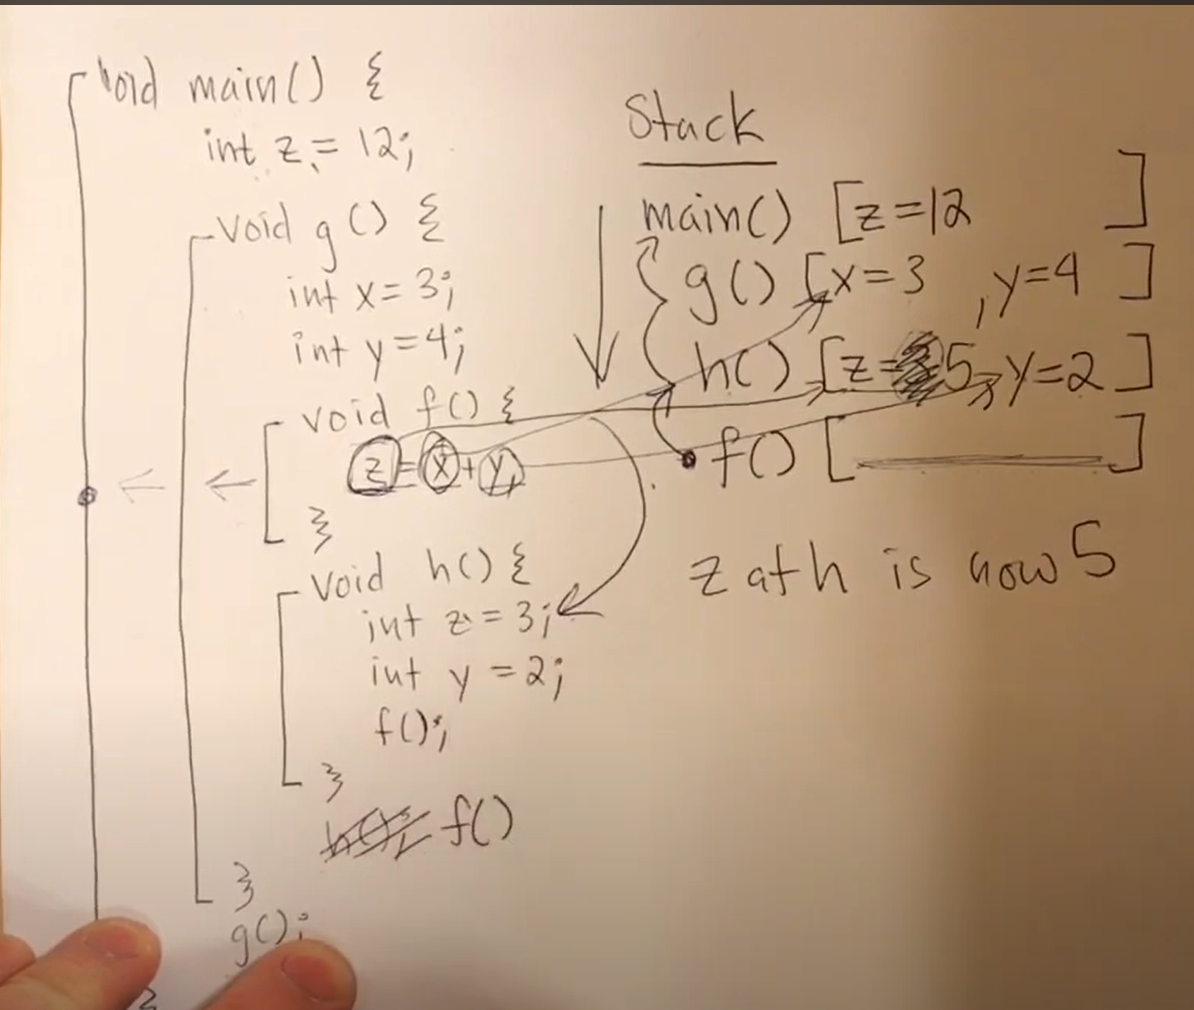 void main() {
int z = 12;
void g() {
int x = 3;
int y = 4;
void f() {
z = x + y,
}
void h() {
int z = 3;
int y = 2;
f();
}
h(); f()
}
g();
}
Stack
main() [z=12 ]
g() [x=3 , y=4 ]
h() [z= 5, y=2 ]
f() [ ]
z at h is now 5